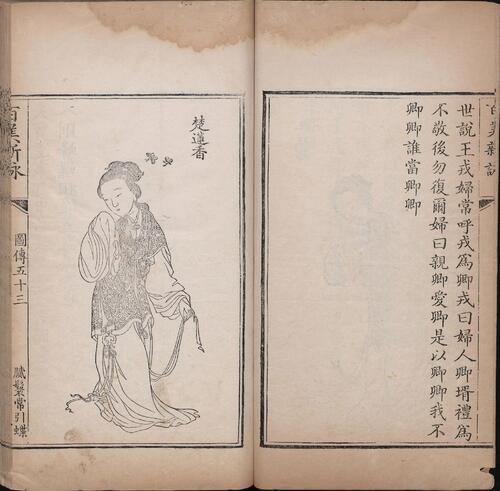 世說王戎婦常呼戎為卿戎曰婦人卿壻禮為
不敬後勿復爾婦曰親卿愛卿是以卿卿我不
卿卿誰當卿卿
楚蓮香
百美新詠
圖傳五十三
膩鬟常引蝶